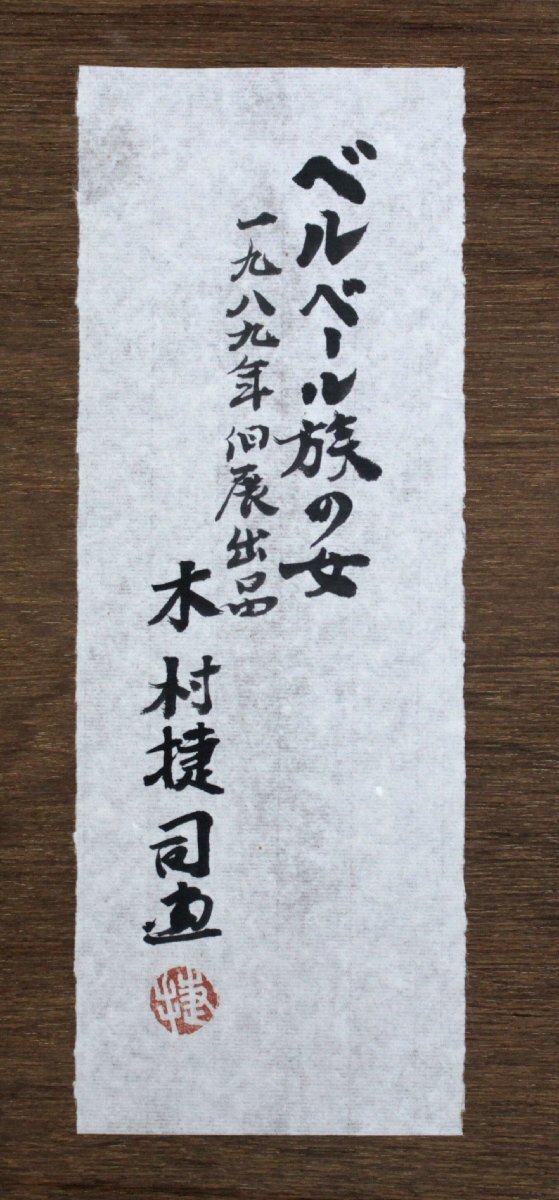 ベルベール族の女
一九八九年個展出品
木村捷司画
捷